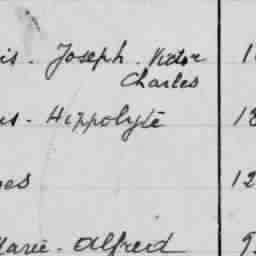 is. Joseph. Victor 1
Charles
us. Hippolyte 18
es 12
Marie. Alfred 9